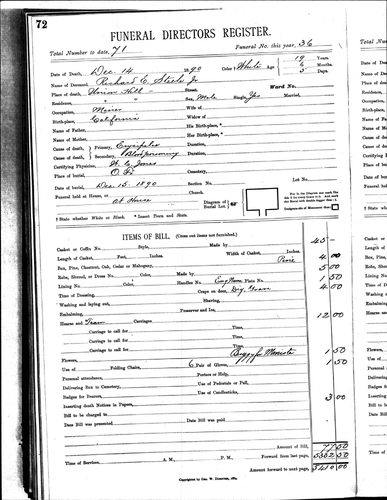 72
FUNERAL DIRECTORS REGISTER.
Total Number to date, 71 Funeral No. this year, 36
Date of Death, Dec. 14 1890 Color † White Age 19 Years
6 Months
5 Days.
Name of Deceased, Richard E. Steele Jr
Place of death, Union Hill Street, Ward No.
Residence, " " Sex, Male Single, Yes Married,
Occupation, Miner Wife of
Birth-place, California Widow of
Name of Father, His Birth-place, *
Name of Mother, Her Birth-place, *
Cause of death, Primary, Erysipelas Duration,
Cause of death, Secondary, Blood poisoning Duration,
Certifying Physician, Jones
Place of burial, Cemetery,
Date of burial, Dec 15. 1890 Section No. Lot No.
Funeral held at House, or Church,
at House
Diagram of Burial Lot,
† State whether White or Black. * Insert Town and State.
ITEMS OF BILL. (Cross out items not furnished.)
Casket or Coffin No. Style, Made by 45 -
Length of Casket, Feet, Inches. Width of Casket, Inches.
Box, Pine, Chestnut, Oak, Cedar or Mahogany, Pine 4 00
Robe, Shroud, or Dress No. Color, Made by 5 00
Lining No. Color, Handles No. Plate No. 1 50
Time of Dressing, Crape on door, 4 00
Washing and laying out, Shaving,
Embalming, Preserver and Ice,
Hearse and Team Carriages 12 00
Carriage to call for Time,
Carriage to call for Time,
Carriage to call for Time,
Buggy for Minister 1 50
Flowers,
Use of Folding Chairs, 6 Pair of Gloves, 1 50
Personal attendance, Porters or Help,
Delivering Box to Cemetery, Use of Pedestals or Pall,
Badges for Bearers, Use of Candlesticks,
Inserting death Notices in Papers, 3 00
Bill to be charged to
Date Bill was presented Date Bill was paid
Amount of Bill, 77 50
Time of Services, A. M., P. M., Forward from last page,
Amount forward to next page,